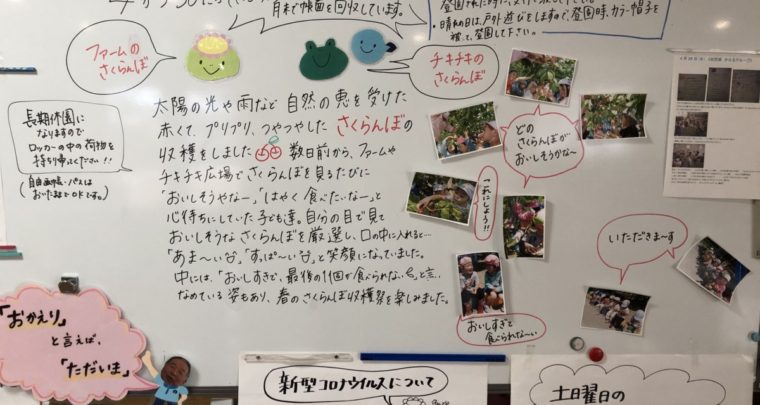 月末で帳面を回収しています。
・晴れの日は、戸外遊びをしますので、登園時、カラー帽子を
被って、登園して下さい。
ファームの
さくらんぼ
チキチキの
さくらんぼ
長期休園に
なりますので
ロッカーの中の荷物を
持ち帰ってください!!
(自由画帳・パスは
おいた話でOKです。)
太陽の光や雨など自然の恵を受けた
赤くて、プリプリ、つやつやした さくらんぼの
収穫をしました 数日前から、ファームや
チキチキ広場でさくらんぼを見るたびに
「おいしそうやなー」「はやく食べたいなー」と
心待ちにしていた子ども達。自分の目で見て
おいしそうなさくらんぼを厳選し、口の中に入れると…
「あま〜い」「すっぱ〜い」と笑顔になっていました。
中には、「おいしすぎて、最後の1個が食べられない」と言い、
なめている姿もあり、春のさくらんぼ収穫祭を楽しみました。
どの
さくらんぼが
おいしそうかな〜
これにしよう!!
いただきま〜す
おいしすぎて
食べられな〜い
「おかえり」
と言えば、
「ただいま」
新型コロナウイルスについて
土曜日の